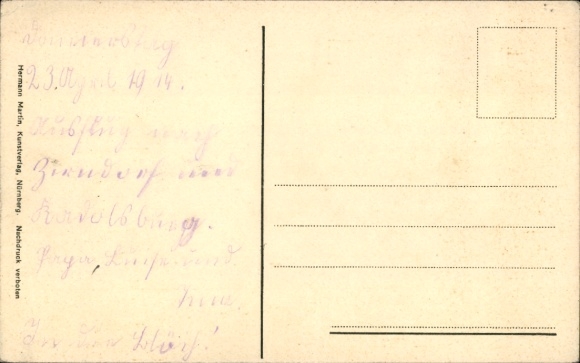 Donnerstag
23. April 1914.
Ausflug nach
Zirndorf und
Kadolsburg.
Papa, Luise und
In der
Hermann Martin, Kunstverlag, Nürnberg. Nachdruck verboten